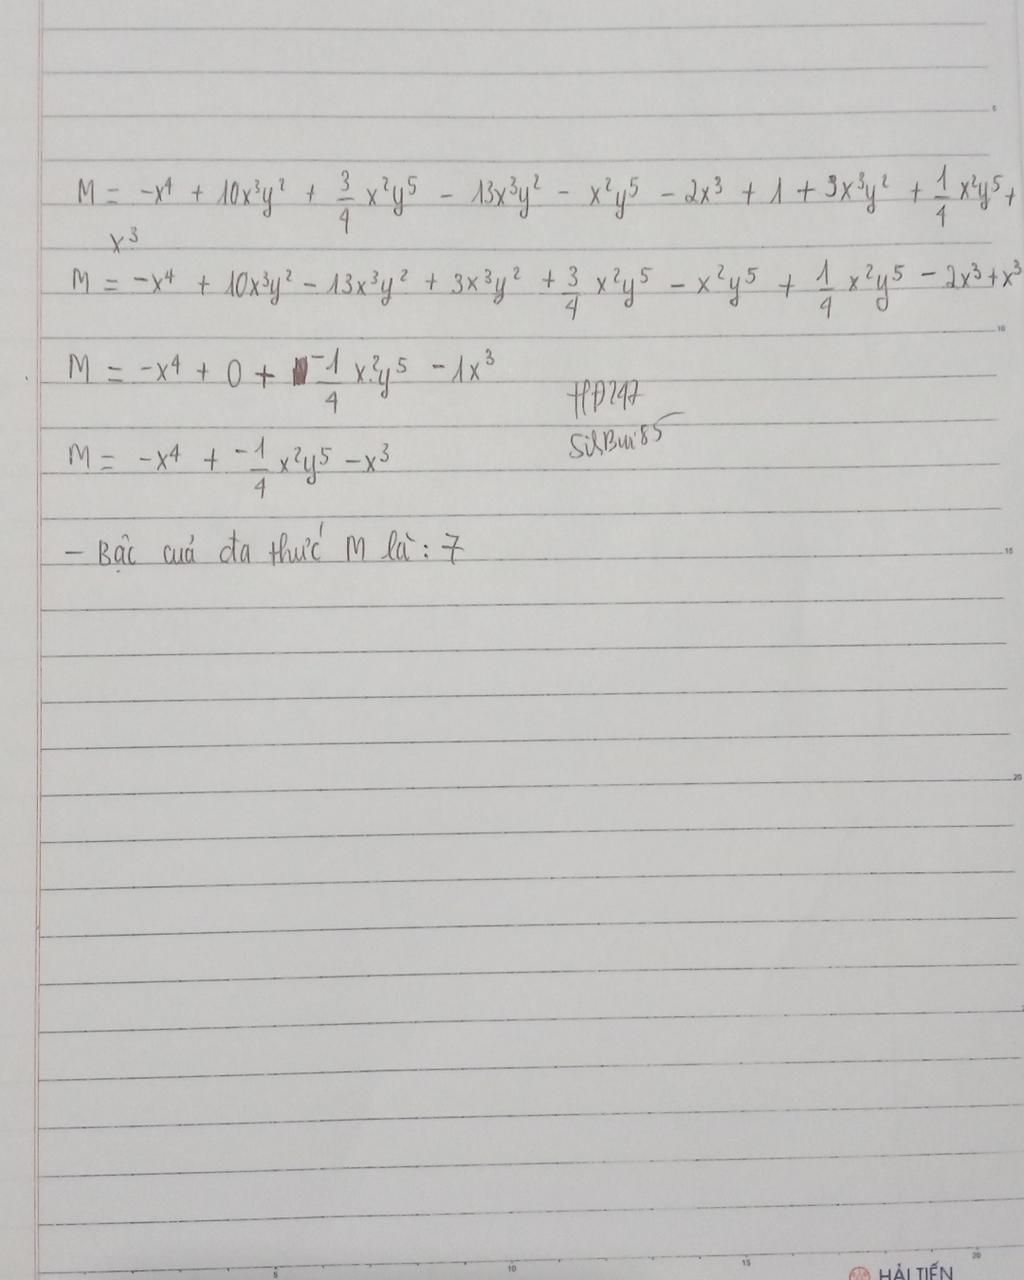 M = -x⁴ + 10x³y² + 3/4 x²y⁵ - 13x³y² - x²y⁵ - 2x³ + 1 + 3x³y² + 1/4 x²y⁵ +
x³
M = -x⁴ + 10x³y² - 13x³y² + 3x³y² + 3/4 x²y⁵ - x²y⁵ + 1/4 x²y⁵ - 2x³ + x³
M = -x⁴ + 0 + -1/4 x²y⁵ - 1x³
HP247
M = -x⁴ + -1/4 x²y⁵ - x³
- Bậc cuả đa thức M là: 7
5
10
15
20
5
10
15
20
HẢI TIẾN